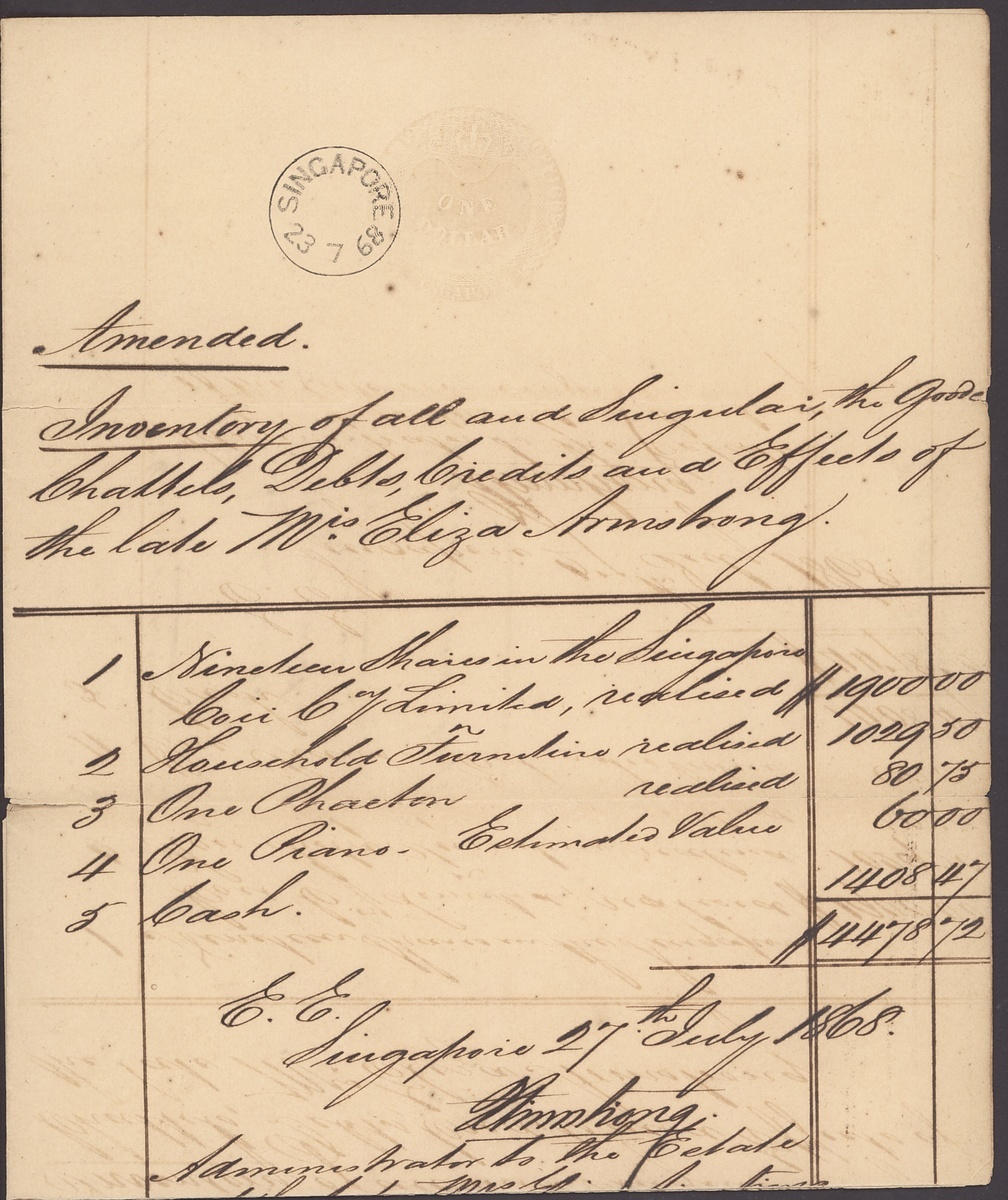 SINGAPORE
23 7 68
ONE
DOLLAR
Amended.
Inventory of all and Singular, the Goods
Chattels, Debts, Credits and Effects of
the late Mrs. Eliza Armstrong.
1 Nineteen Shares in the Singapore
Coir Coy Limited, realised $ 1900 00
2 Household Furniture realised 1029 50
3 One Phaeton realised 80 75
4 One Piano. Estimated Value 60 00
5 Cash. 1408 47
$ 4478 72
E. E.
Singapore 27th July 1868.
Armstrong.
Administrator to the Estate